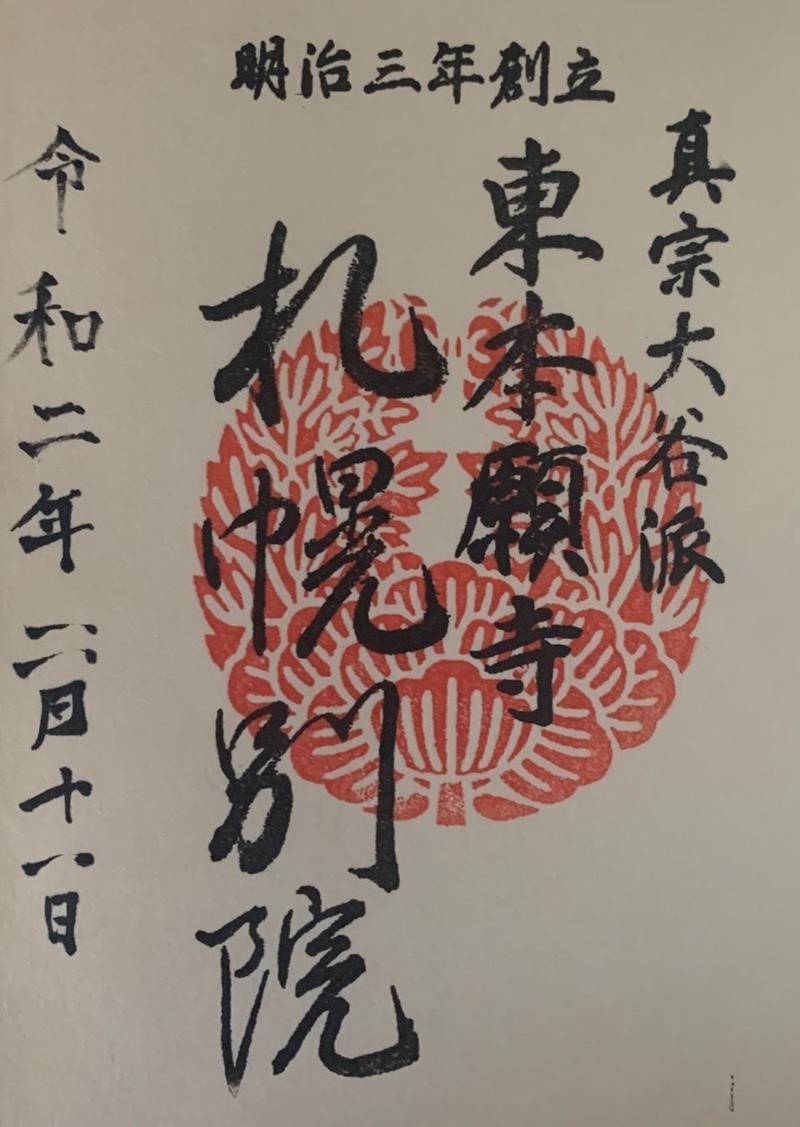 明治三年創立
真宗大谷派
東本願寺
札幌別院
令和二年六月十一日